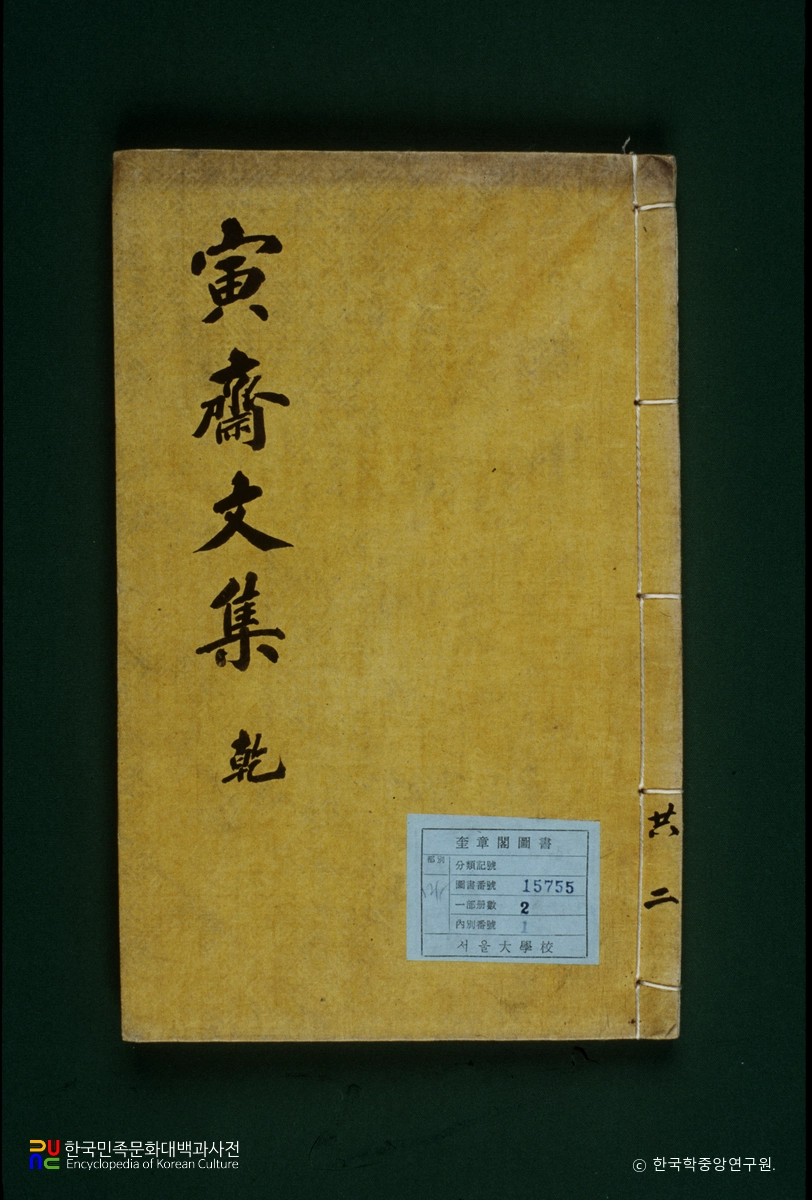 寅齋文集 乾
共二
奎章閣圖書
部別
分類記號
圖書番號 15755
一部冊數 2
內別番號 1
서울大學校
한국민족문화대백과사전
Encyclopedia of Korean Culture
© 한국학중앙연구원.